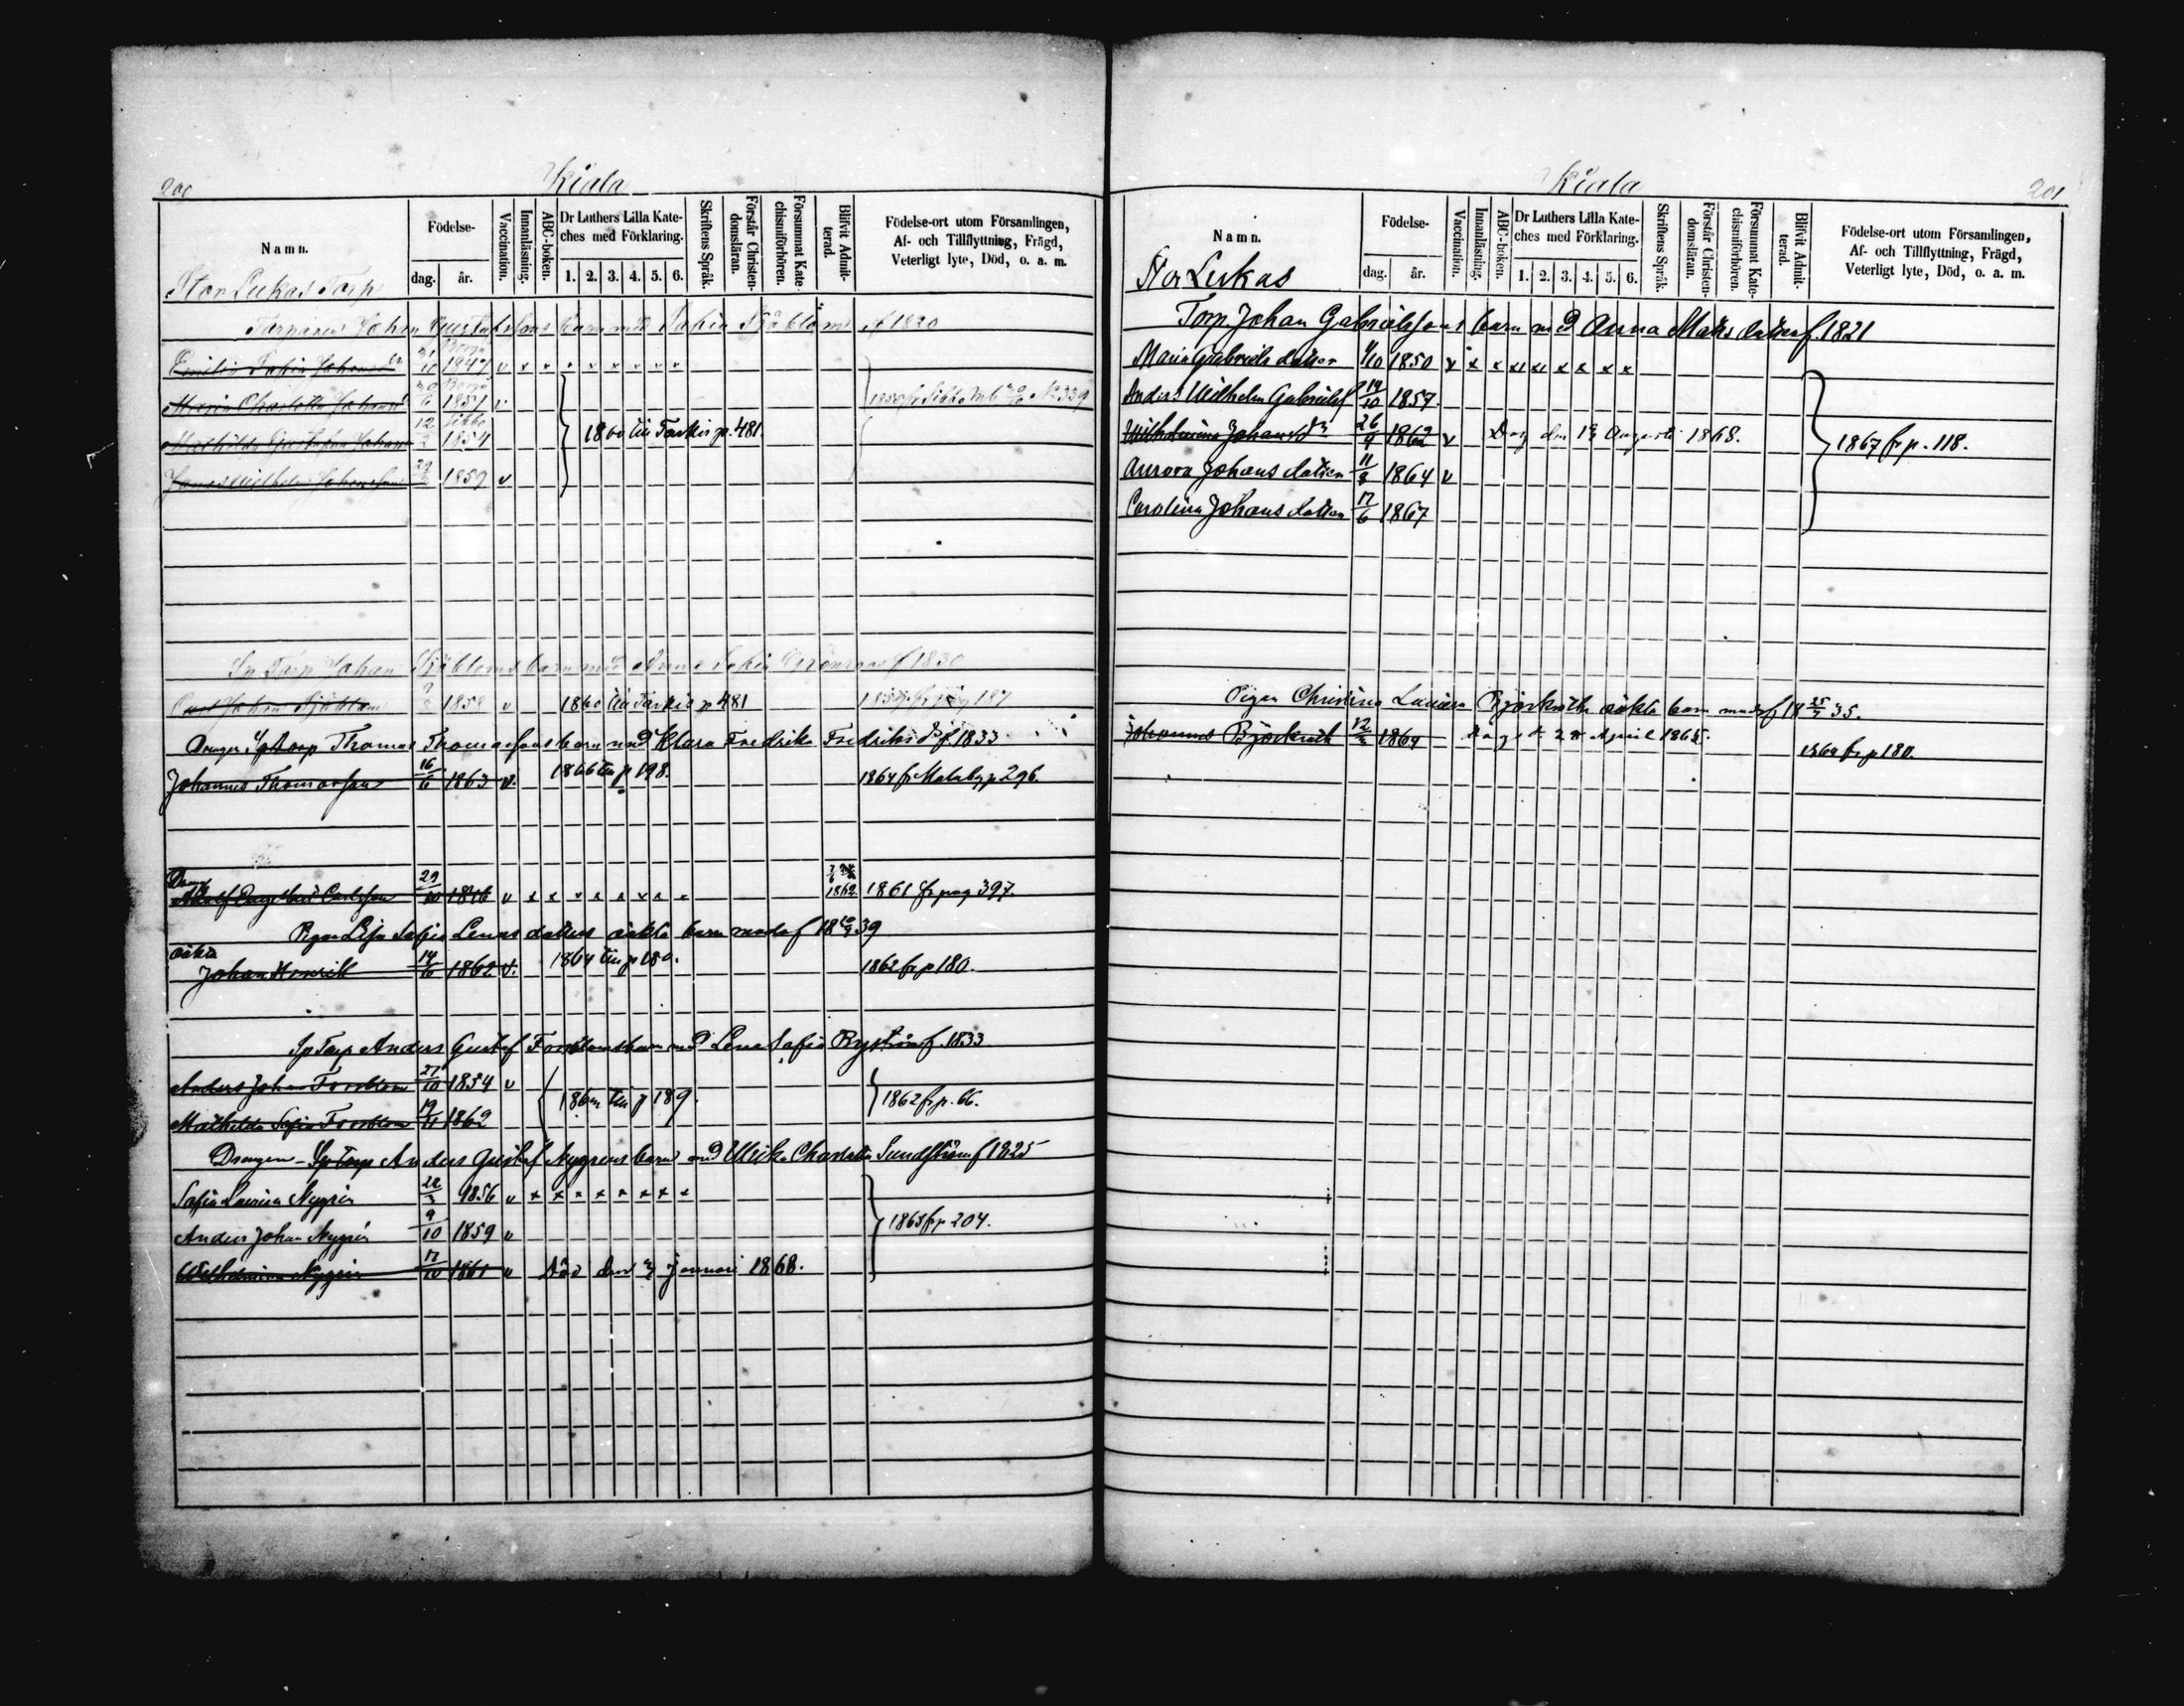 200
Kiala
Namn.
Födelse-
dag.
år.
Vaccination.
Innanläsning.
ABC-boken.
Dr Luthers Lilla Kate-
ches med Förklaring.
1. 2. 3. 4. 5. 6.
Skriftens Språk.
Förstår Christen-
domsläran.
Försummat Kate-
chismiförhören.
Blifvit Admit-
terad.
Födelse-ort utom Församlingen,
Af- och Tillflyttning, Frägd,
Veterligt lyte, Död, o. a. m.
Stor Lukas Torp
Torparen Johan Gustafssons barn med Sofia Sjöblom f 1820
Emilia Sofia Johans dr Borgå 1847 v x x x x x x x x
Maria Charlotta Johansd 30/6 Borgå 1851 v
Mathilda Gustafva Johans 12/2 Sibbo 1854 1860 till Tarkis p. 481
Jonas Wilhelm Johansson 1859 v
Sp Torp Johan Sjöbloms barn med Anna Sofia f 1830
Carl Johan Sjöblom 1858 v 1860 till Tarkis p 481 187
Drängen Sp Torp Thomas Thomassons barn med Klara Fredrika Fredriksdr f 1833
Johannes Thomasson 16/6 1863 v. 1866 till p 198. 1864 fr Malmby p 296.
Dräng
Adolf Engelbert Carlsson 29/10 1846 v x x x x x x x x 1862 1861 fr pag 397.
Pigan Lisa Sofia Lenas dotters oäkta barn modren f 18 39
oäkta
Johan Henrik 14/10 1862 v. 1864 till p 180. 1862 fr p 180.
Sp Torp Anders Gustaf Forsbloms barn med Lena Sofia Nyström f. 1833
Anders Johan Forsblom 27/10 1854 v
Mathilda Sofia Forsblom 19/11 1862 till p 189. 1862 fr p. 66.
Drängen Sp Torp Anders Gustaf Nygrens barn med Ulrika Charlotta Sundström f 1825
Sofia Lovisa Nygrén 22/3 1856 v x x x x x x x x
Anders Johan Nygrén 9/10 1859 v 1863 fr p 204.
Wilhelmina Nygrén 17/10 1861 v Död den Januari 1868.
201
Kiala
Namn.
Födelse-
dag.
år.
Vaccination.
Innanläsning.
ABC-boken.
Dr Luthers Lilla Kate-
ches med Förklaring.
1. 2. 3. 4. 5. 6.
Skriftens Språk.
Förstår Christen-
domsläran.
Försummat Kate-
chismiförhören.
Blifvit Admit-
terad.
Födelse-ort utom Församlingen,
Af- och Tillflyttning, Frägd,
Veterligt lyte, Död, o. a. m.
Stor Lukas
Torp. Johan Gabrielssons barn med Anna Mats dotter f. 1821
Maria Gabriels dotter 1850 v x x x x x x x x
Anders Wilhelm Gabrielss 14/10 1857.
Wilhelmina Johansdr 26/9 1862 v Dog den 13 Augusti 1868. 1867 fr p. 118.
Aurora Johans dotter 11/8 1864 v
Carolina Johans dotter 17/6 1867
Pigan Christina Lovisa Björkroths oäkta barn modren f 18 25/7 35.
Johannes Björkroth 12/3 1864 Dog d 28 April 1865. 1864 fr p 180.